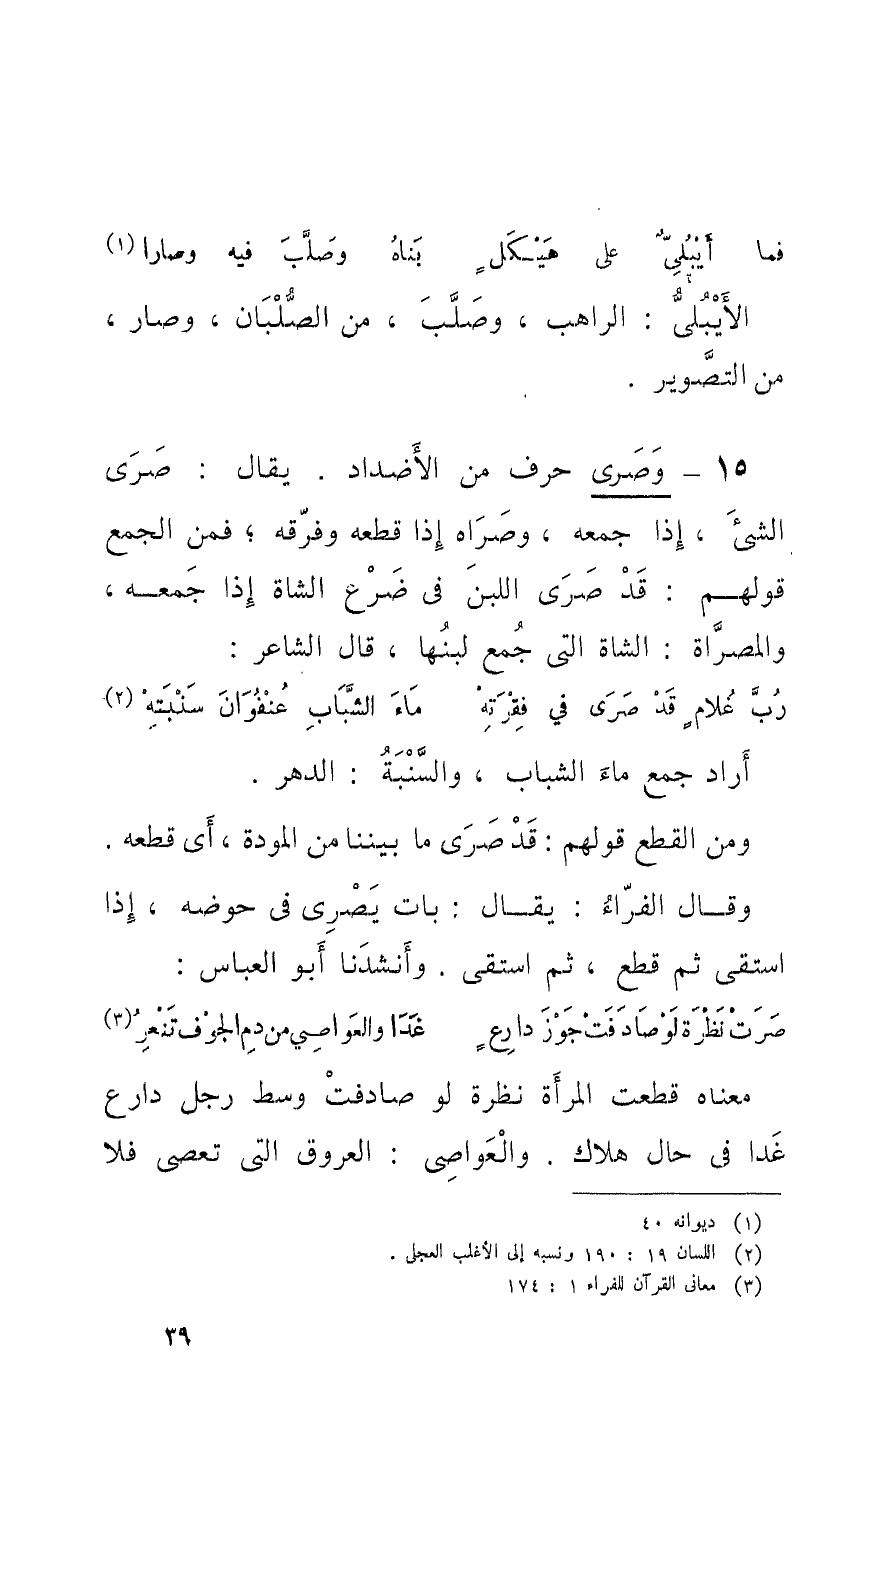 فما أَيْبُلِىٌّ على هَيْكَلٍ بَناهُ وصَلَّبَ فيه وصارا (١)
الأَيْبُلىُّ : الراهب ، وصَلَّبَ ، من الصُّلْبَان ، وصار ،
من التصَّوير .
١٥ – وَصَرى حرف من الأَضداد . يقال : صَرَى
الشئَ ، إِذا جمعه ، وصَرَاه إِذا قطعه وفرّقه ؛ فمن الجمع
قولهم : قَدْ صَرَى اللبنَ فى ضَرْع الشاة إِذا جَمعه ،
والمصرَّاة : الشاة التى جُمع لبنُها ، قال الشاعر :
رُبَّ غُلامٍ قَدْ صَرَى في فِقْرَتِهْ مَاءَ الشَّبَابِ عُنْفُوَانَ سَنْبَتِهْ (٢)
أَراد جمع ماءَ الشباب ، والسَّنْبَةُ : الدهر .
ومن القطع قولهم : قَدْ صَرَى ما بيننا من المودة ، أَى قطعه .
وقال الفرّاءُ : يقال : بات يَصْرِى فى حوضه ، إِذا
استقى ثم قطع ، ثم استقى . وأَنشدَنا أَبو العباس :
صَرَتْ نَظْرَة لَوْ صَادَفَتْ جَوْزَ دارِعٍ غَدَا والعَواصِي من دمِ الجوْف تَنْعرُ (٣)
معناه قطعت المرأَة نظرة لو صادفتْ وسط رجل دارع
غَدا فى حال هلاك . والْعَواصِى : العروق التى تعصى فلا
(١) ديوانه ٤٠
(٢) اللسان ١٩ : ١٩٠ ونسبه إلى الأغلب العجلى .
(٣) معانى القرآن للفراء ١ : ١٧٤
٣٩